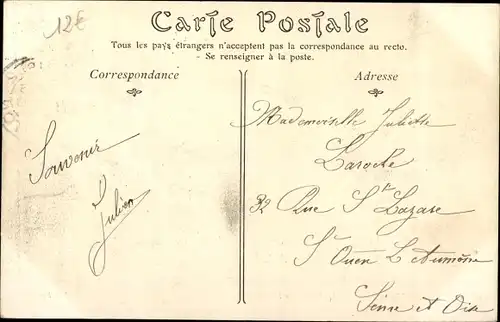 12€
Carte Postale
Tous les pays étrangers n'acceptent pas la correspondance au recto.
- Se renseigner à la poste.
Correspondance
Adresse
Souvenir
Julien
Mademoiselle Juliette
Laroche
32 Rue St Lazare
St Ouen L'Aumône
Seine et Oise